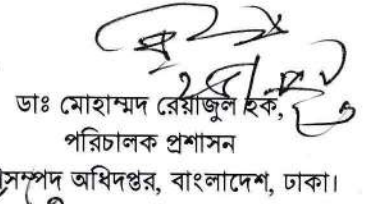 ডাঃ মোহাম্মদ রেয়াজুল হক,
পরিচালক প্রশাসন
সম্পদ অধিদপ্তর, বাংলাদেশ, ঢাকা।